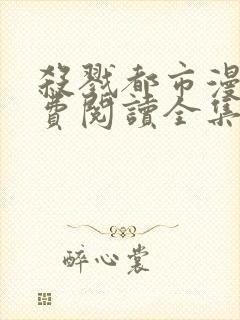 殺戮都市漫
費閱讀全集
醉心裳